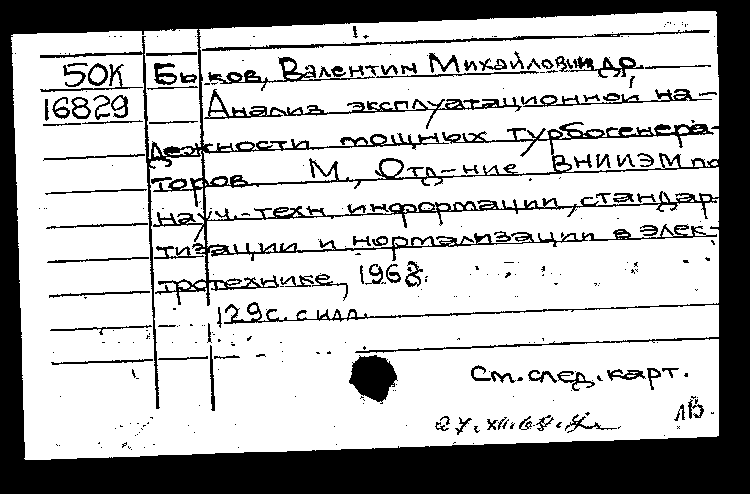 1.
50К Быков, Валентин Михайлович и др.
16829 Анализ эксплуатационной на-
дежности мощных турбогенера-
торов. М., Отд-ние ВНИИЭМ по
науч.-техн. информации, стандар-
тизации и нормализации в элек-
тротехнике, 1968.
129 с. с илл.
См. след. карт.
27.XII.68.
1В